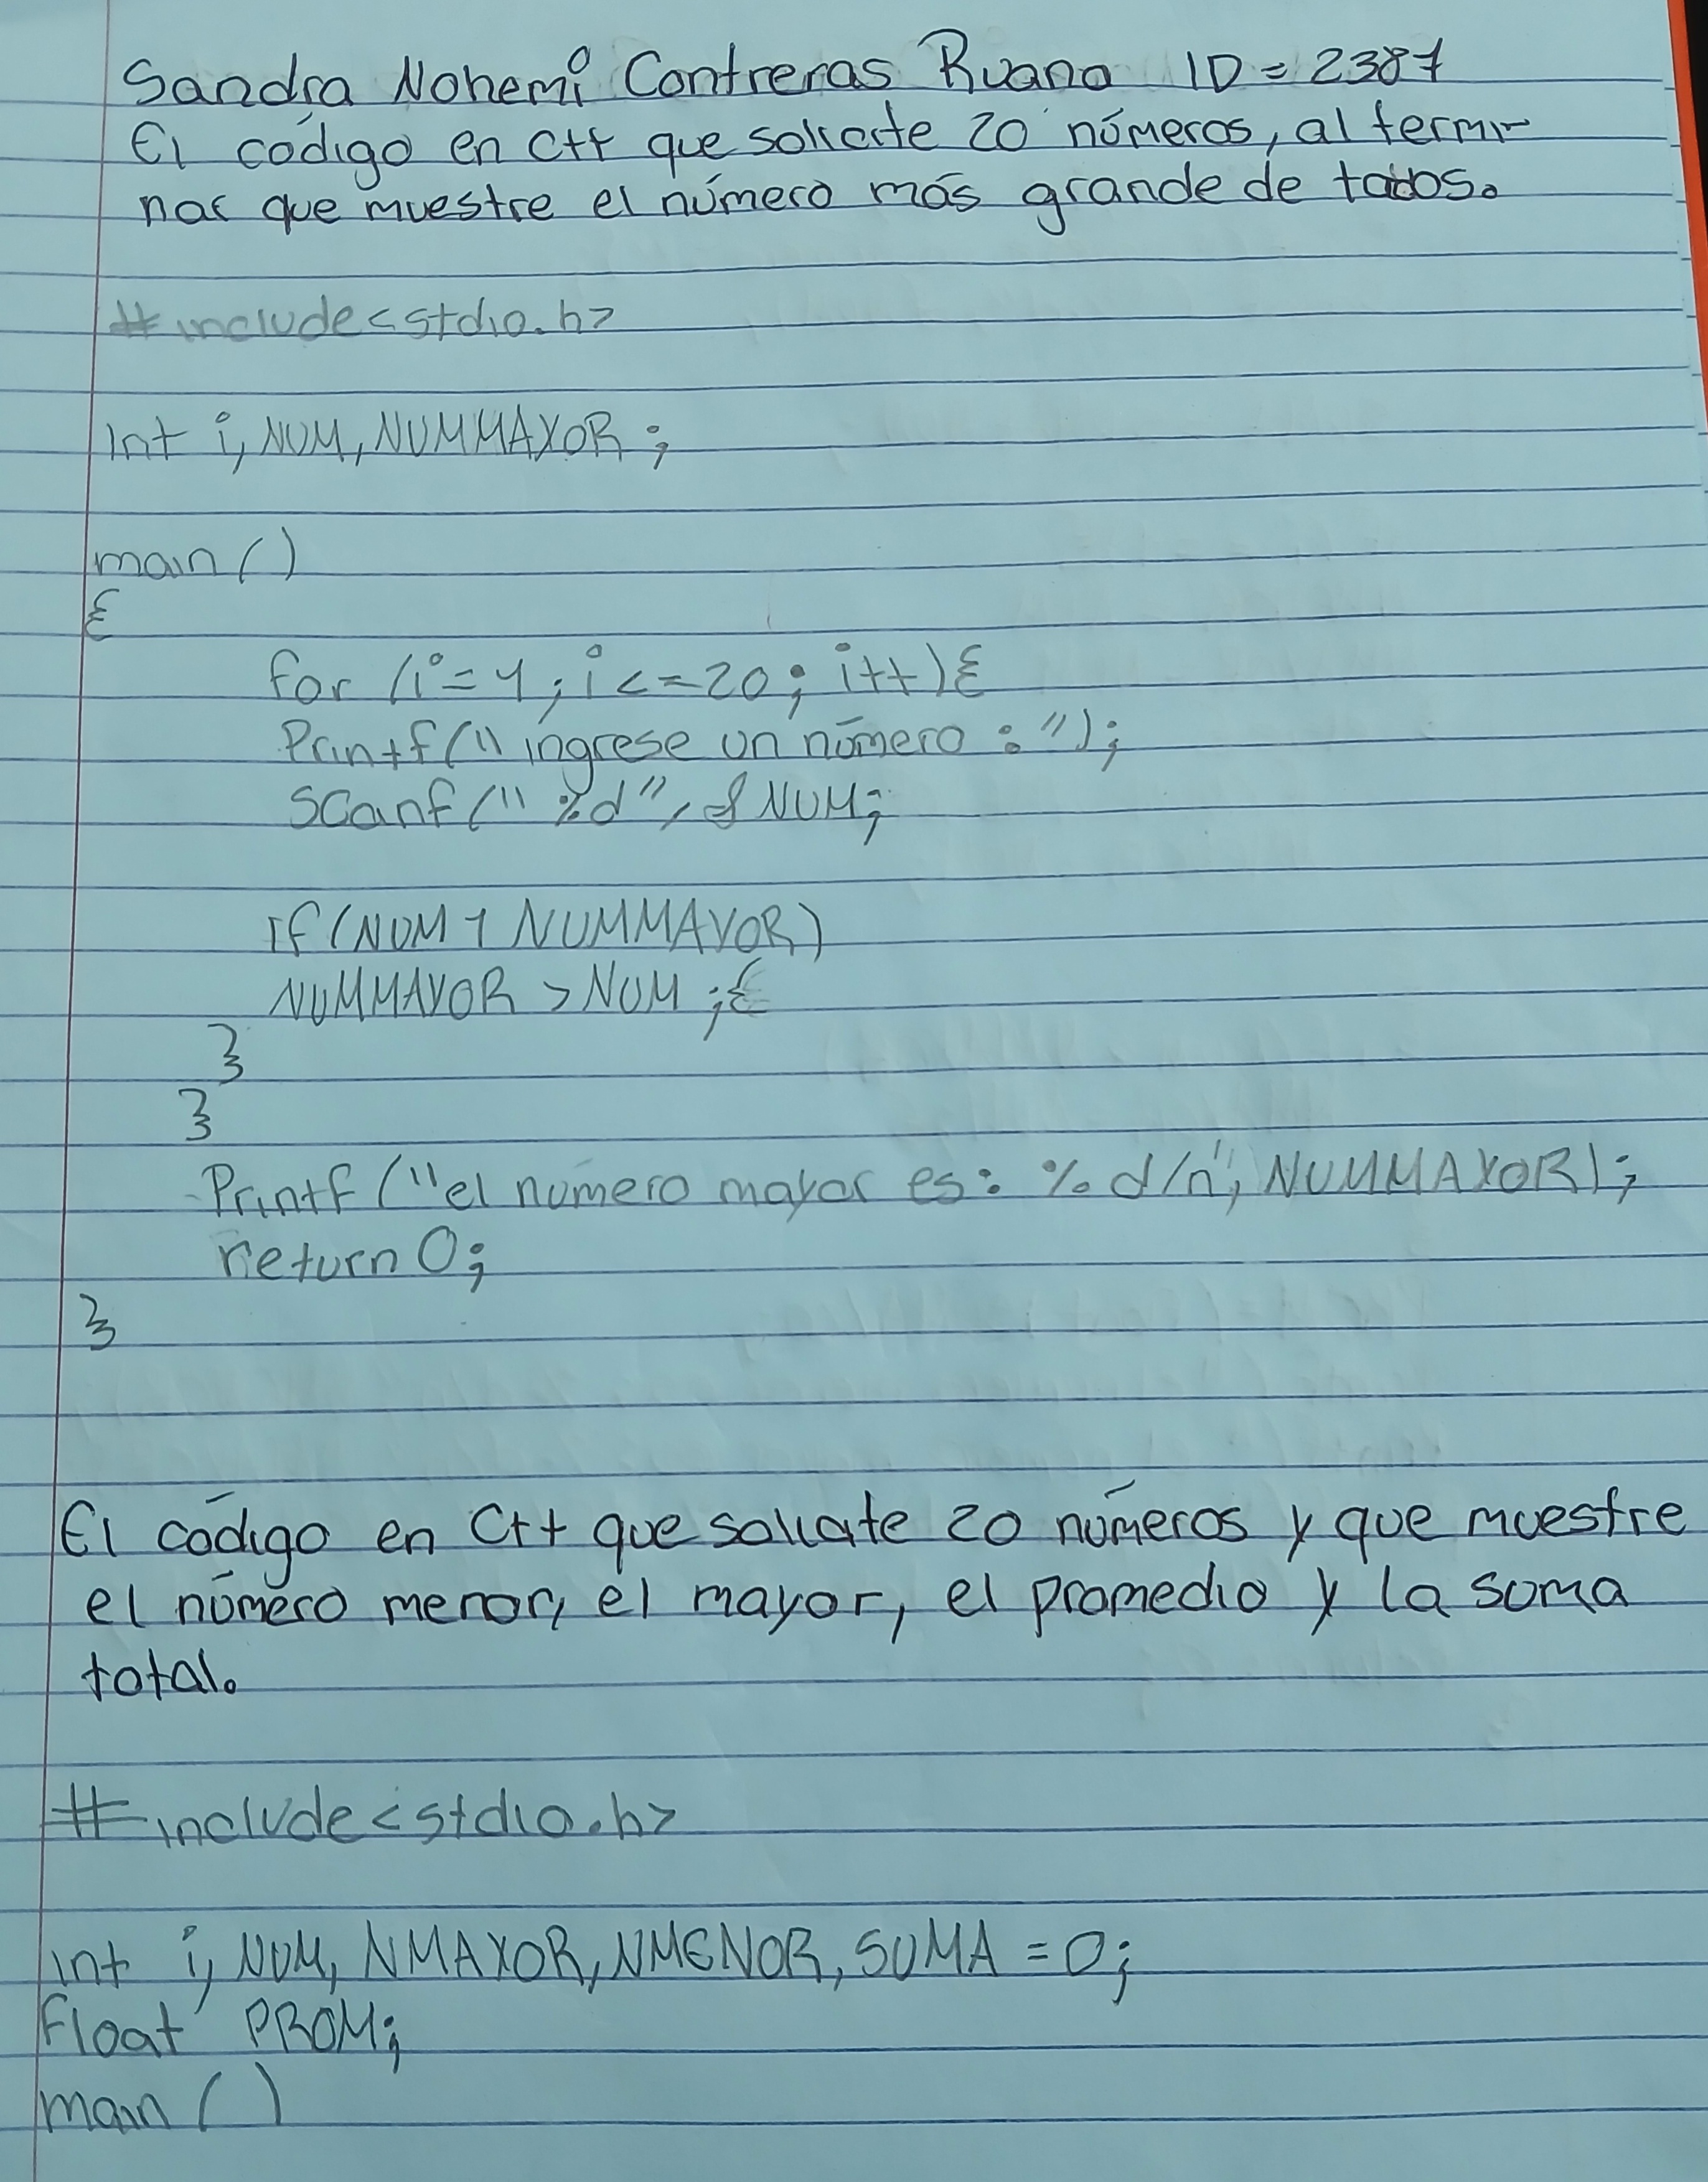 Sandra Nohemí Contreras Ruano ID = 2387
El código en C++ que solicite 20 números, al termi-
nar que muestre el número más grande de todos.
#include<stdio.h>
int i, NUM, NUMMAYOR;
main()
{
for (i=1; i<=20; i++){
Printf("ingrese un número:");
Scanf("%d", &NUM;
if(NUM 1 NUMMAYOR)
NUMMAYOR > NUM;{
}
}
Printf("el número mayor es: %d/n", NUMMAYOR);
return 0;
}
El código en C++ que solicite 20 números y que muestre
el número menor, el mayor, el promedio y la suma
total.
#include<stdio.h>
int i, NUM, NMAYOR, NMENOR, SUMA = 0;
Float PROM;
main()